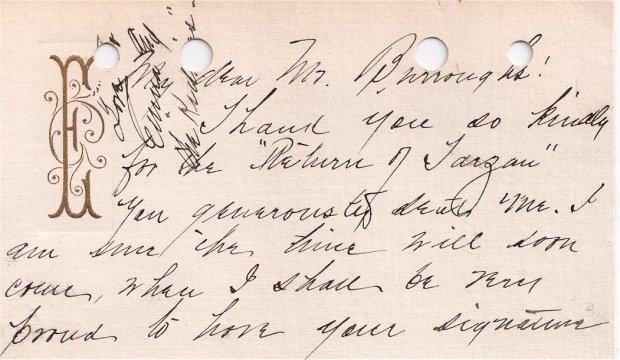 My dear Mr. Burroughs!
Thank you so kindly
for the "Return of Tarzan"
You generously sent me. I
am sure the time will soon
come, when I shall be very
proud to have your signature